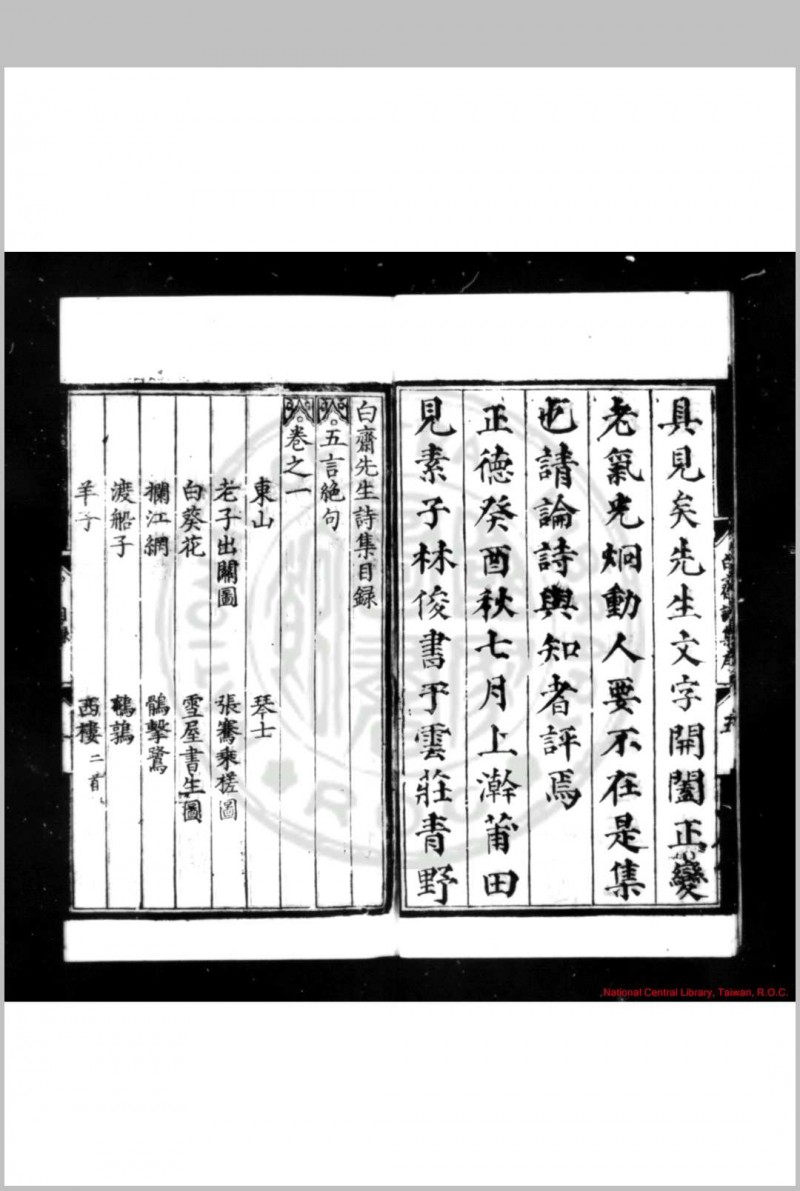 具見矣先生文字開闔正變
老氣光炯動人要不在是集
也請論詩與知者評焉
正德癸酉秋七月上澣莆田
見素子林俊書于雲莊青野
白齋先生詩集目録
五言絕句
卷之一
東山 琴士
老子出關圖 張騫乘槎圖
白葵花 雪屋書生圖
攔江網 鶻擊鷺
渡船子 鵪鶉
羊子 西樓二首
National Central Library, Taiwan, R.O.C.